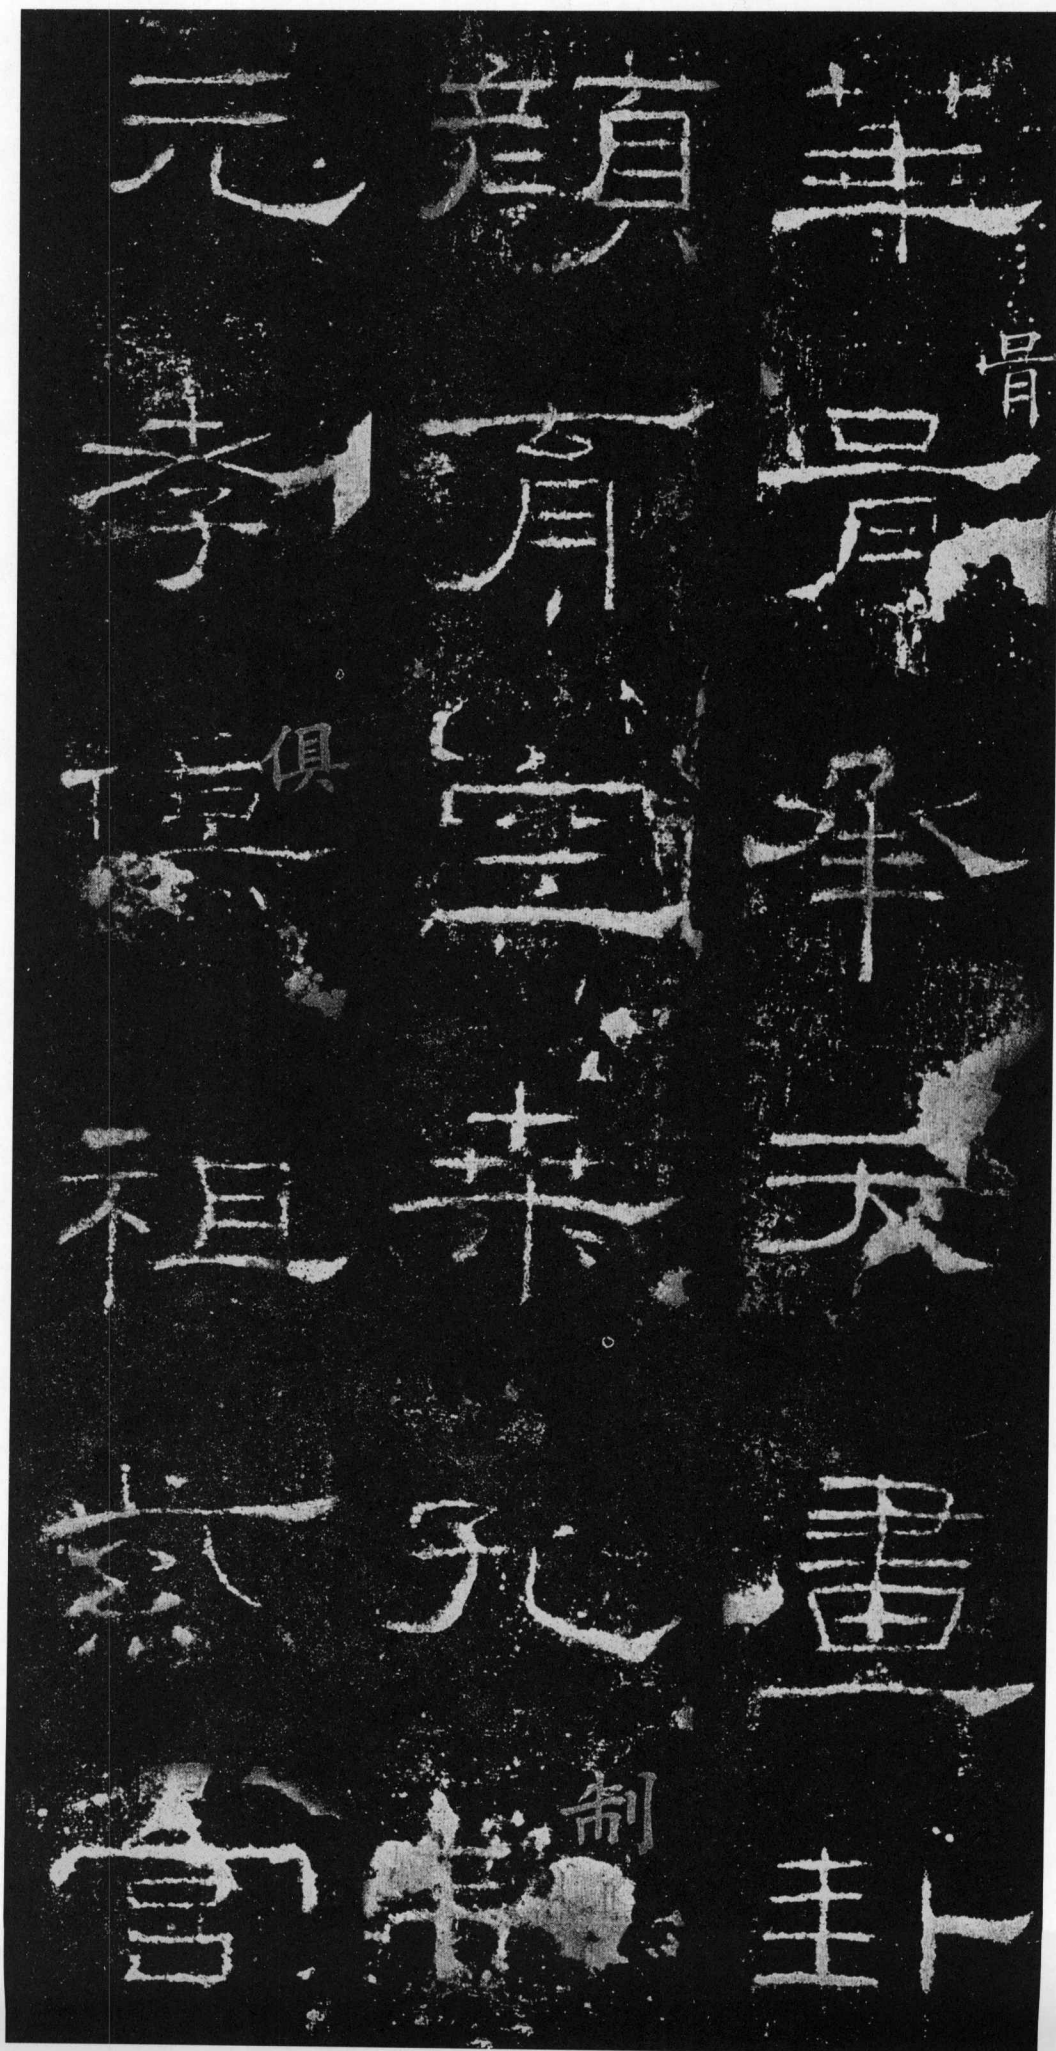 華胥承天畫卦
顏育空桑孔制
元孝俱祖紫宮
胥
制
俱